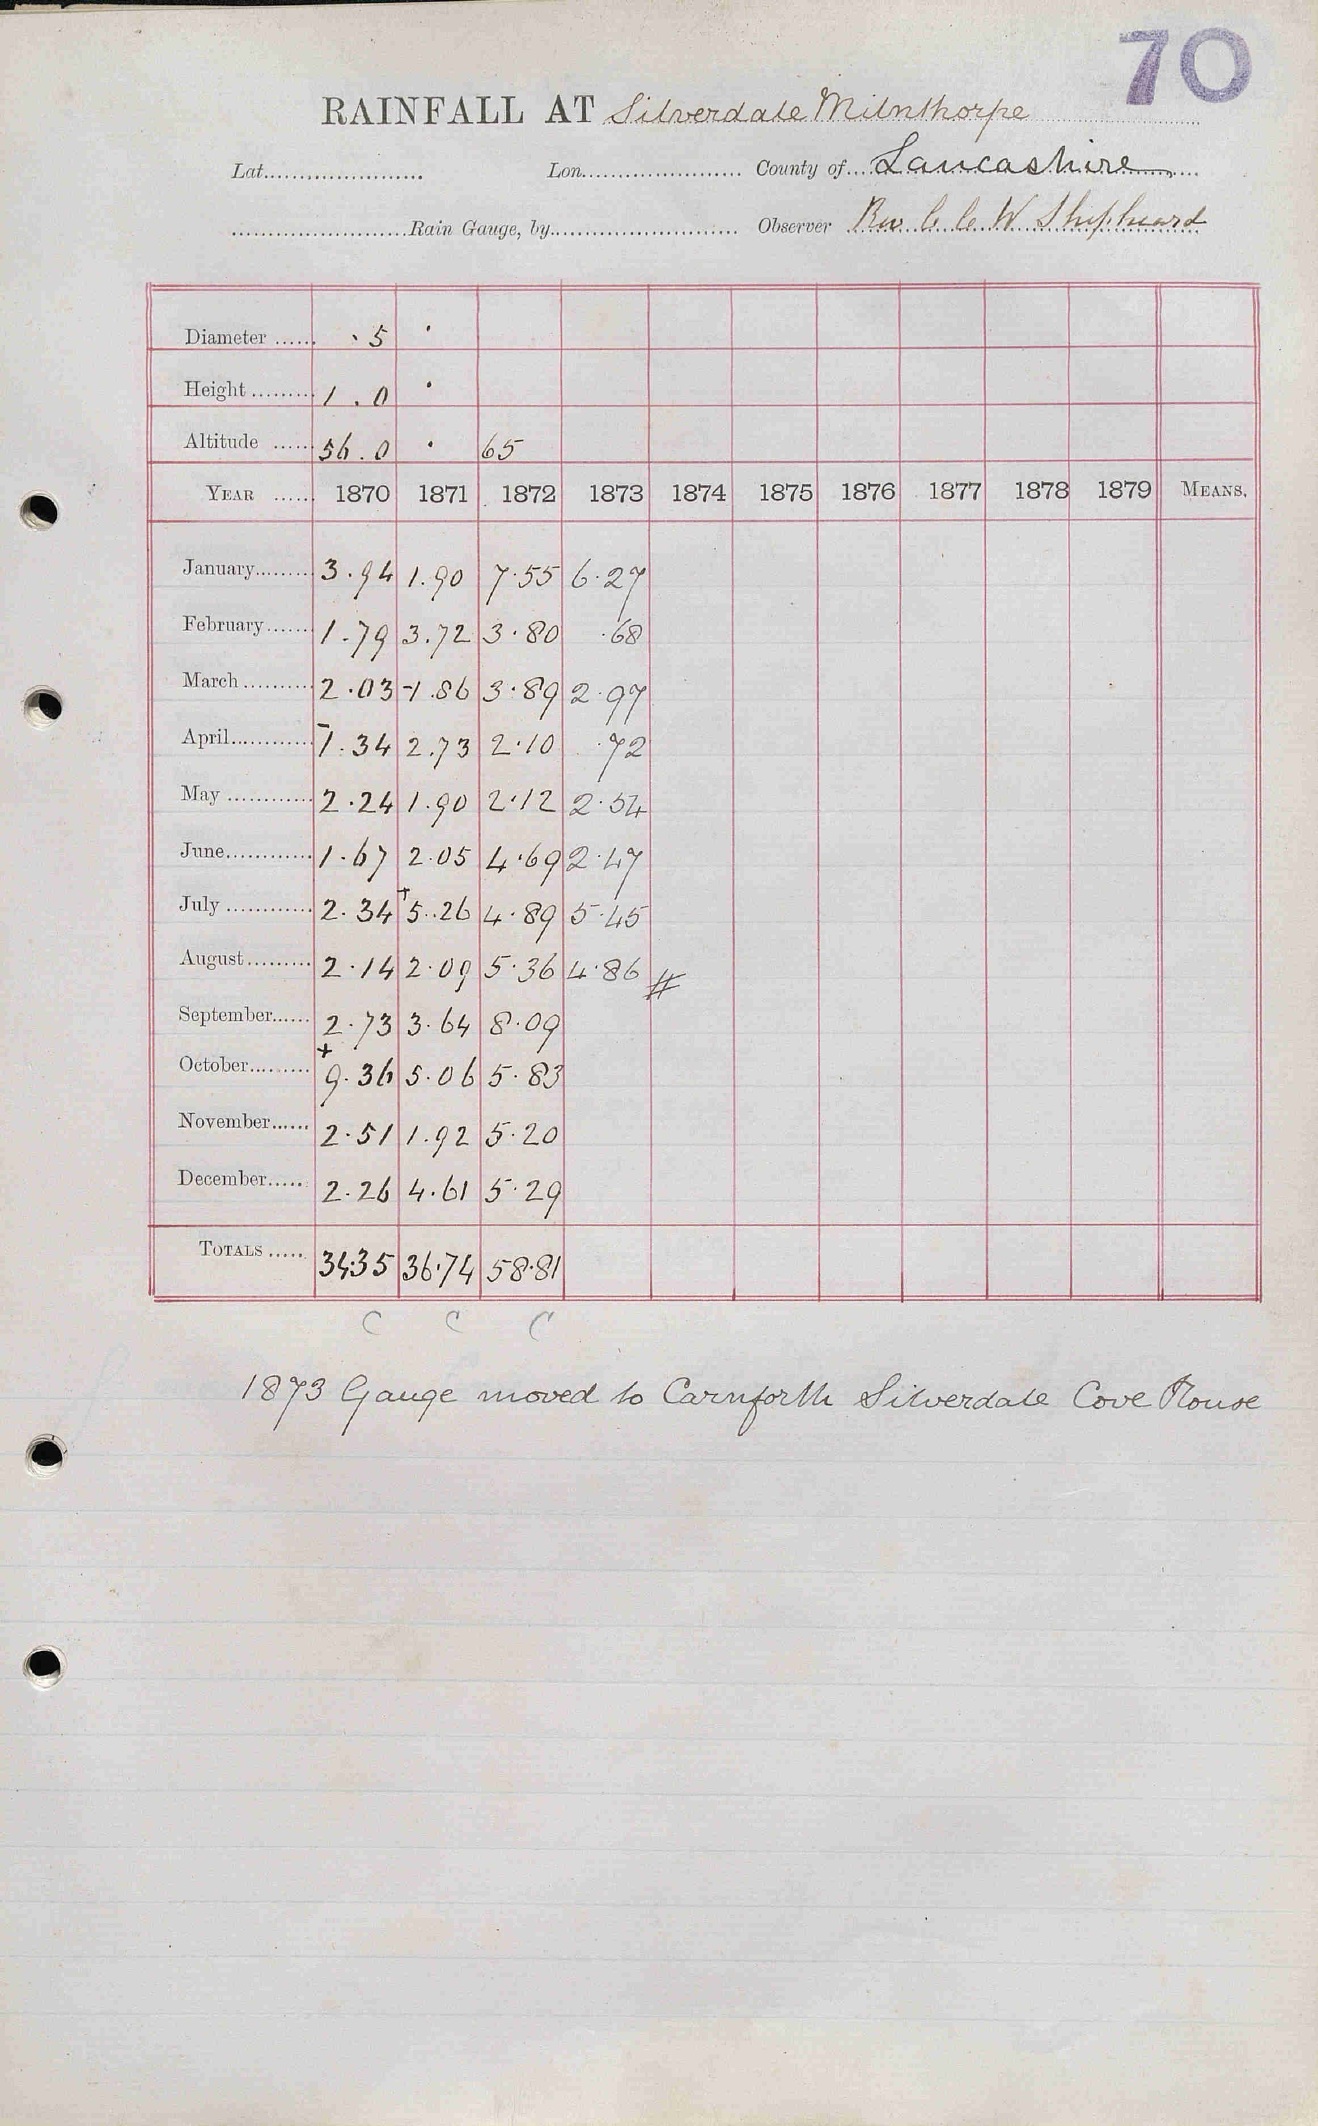 70
RAINFALL AT Silverdale Milnthorpe
Lat. Lon. County of Lancashire
Rain Gauge, by Observer Rev C C W Shepheard
Diameter ...... .5 .
Height ......... 1.0 .
Altitude ...... 56.0 . 65
YEAR ...... 1870 1871 1872 1873 1874 1875 1876 1877 1878 1879 MEANS.
January......... 3.94 1.90 7.55 6.27
February...... 1.79 3.72 3.80 .68
March.......... 2.03 -1.86 3.89 2.97
April............ -1.34 2.73 2.10 .72
May ............ 2.24 1.90 2.12 2.54
June............ 1.67 2.05 4.69 2.47
July ............ 2.34 +5.26 4.89 5.45
August......... 2.14 2.09 5.36 4.86 #
September...... 2.73 3.64 8.09
October......... +9.36 5.06 5.83
November...... 2.51 1.92 5.20
December..... 2.26 4.61 5.29
TOTALS ..... 34.35 36.74 58.81
C C C
1873 Gauge moved to Carnforth Silverdale Cove House